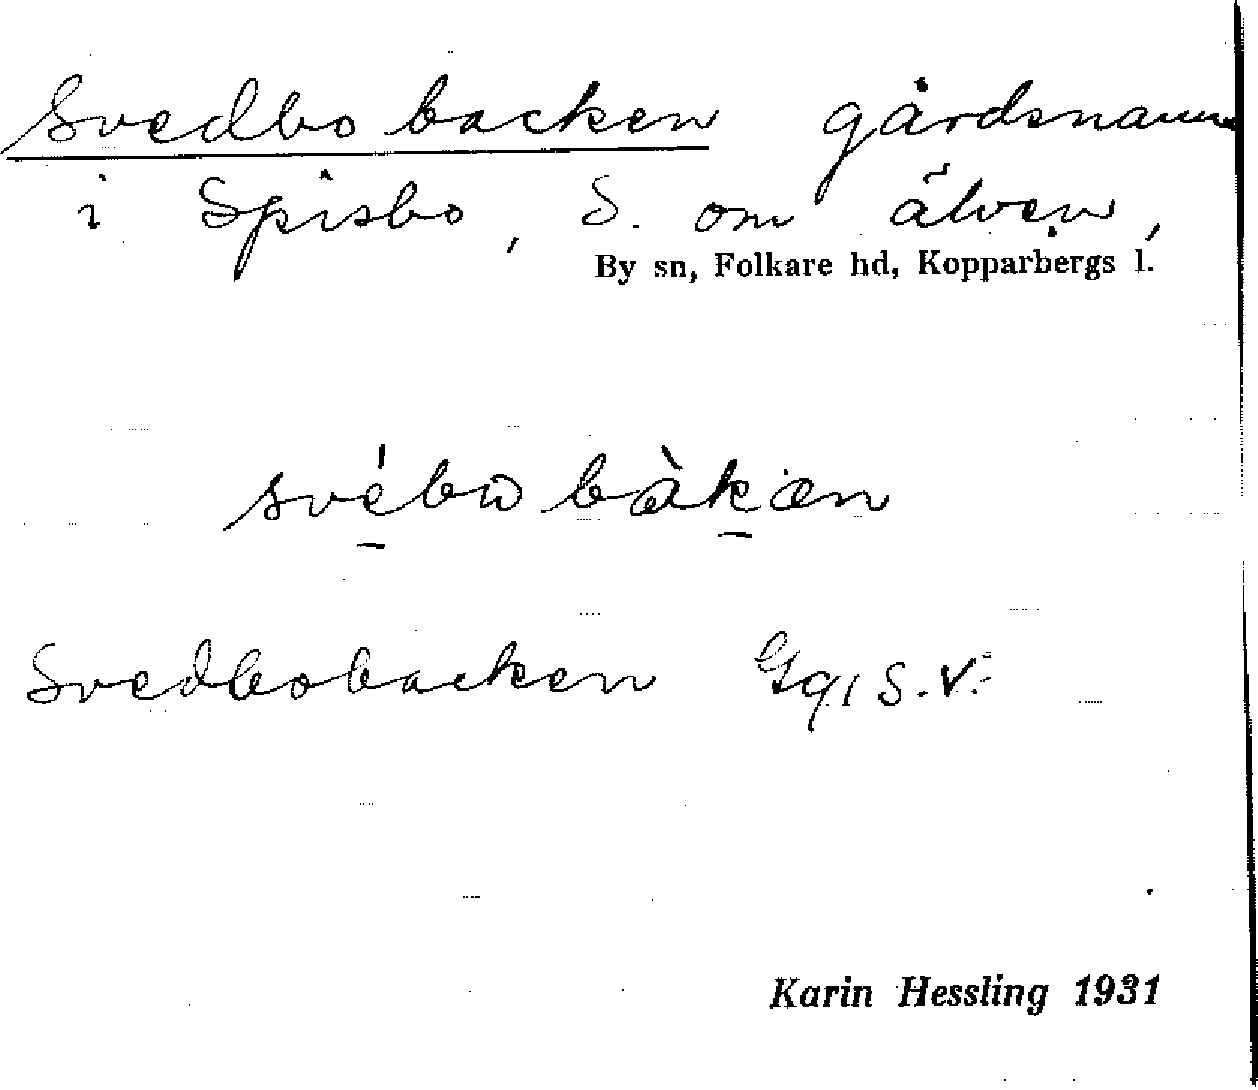 Svedbobacken gårdsnamn
i Spisbo, S. om älven,
By sn, Folkare hd, Kopparbergs l.
svébω bàkæn
Svedbobacken Gq, S.V.
Karin Hessling 1931